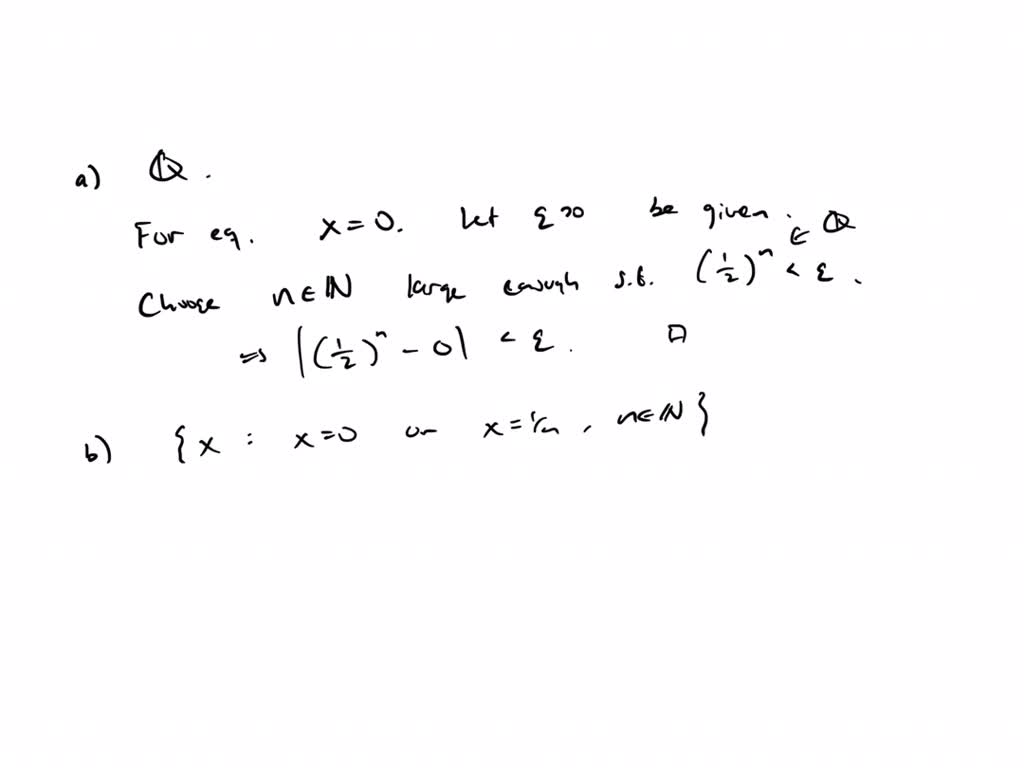 a) ℚ.
For eg. x = 0. Let ε > 0 be given.
Choose n ∈ ℕ large enough s.t. (1/2)^n < ε. ∈ ℚ
⇒ |(1/2)^n − 0| < ε. □
b) {x : x = 0 or x = 1/n, n ∈ ℕ}